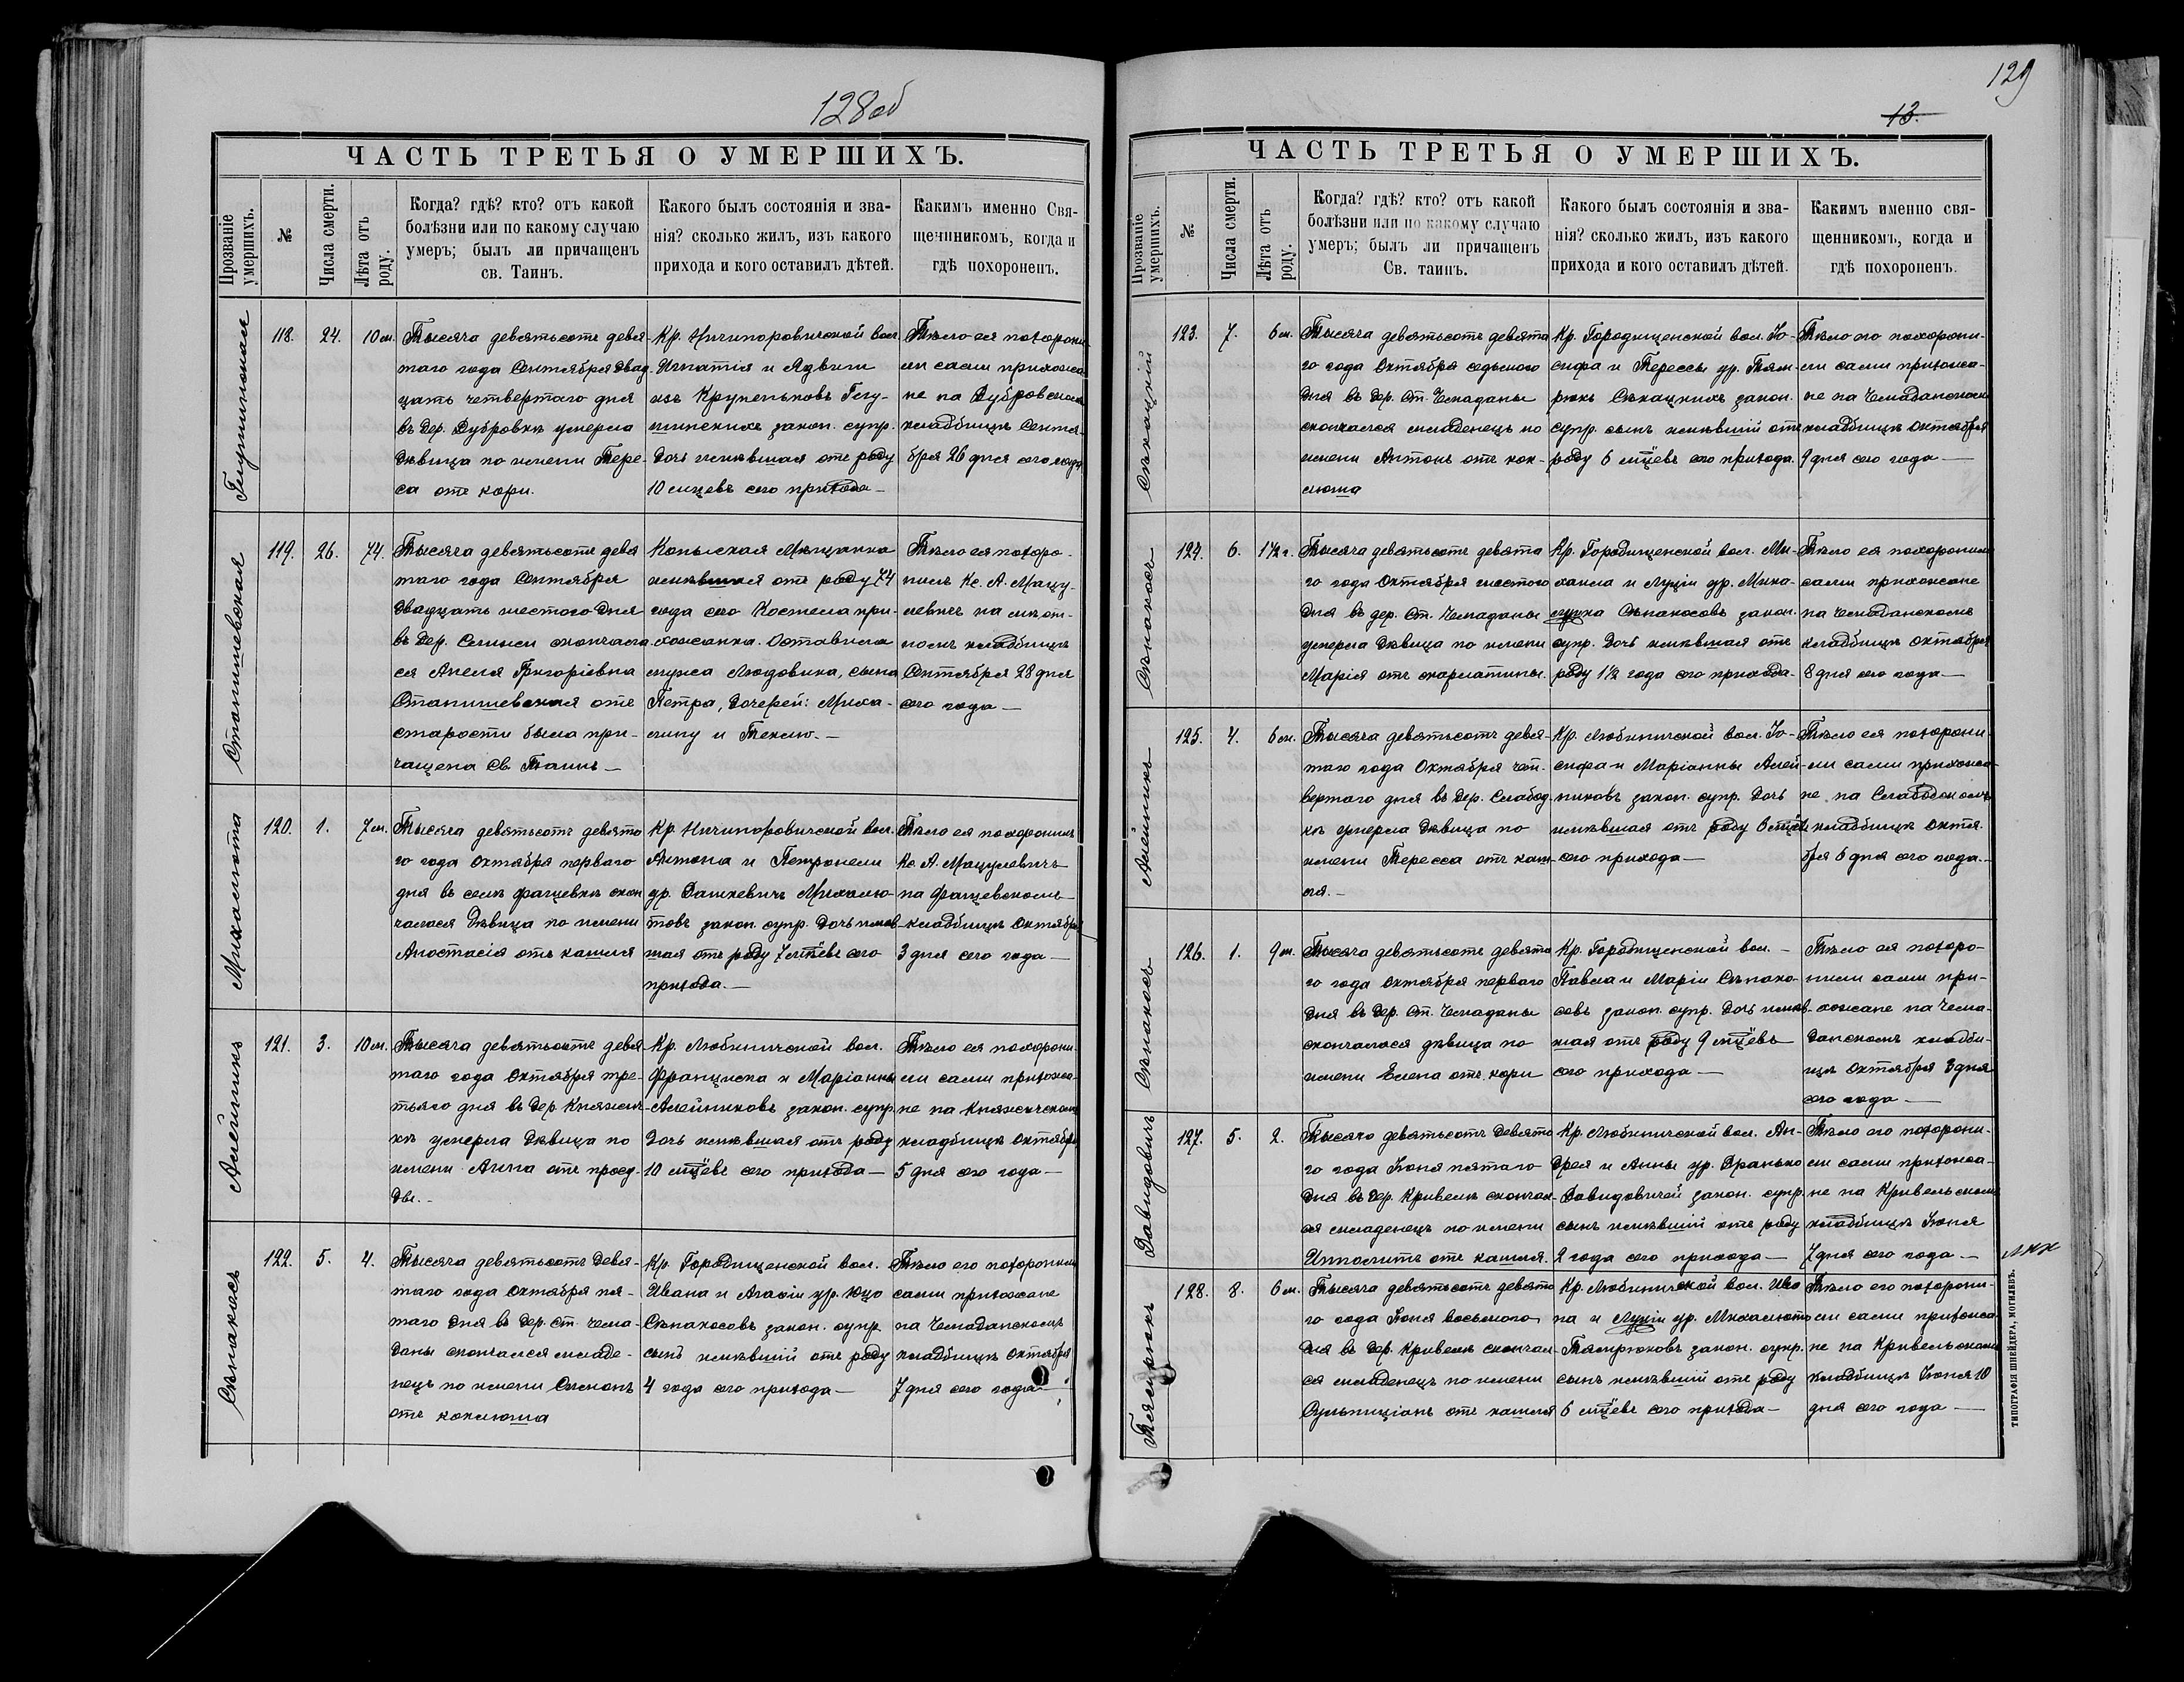 128 об
ЧАСТЬ ТРЕТЬЯ О УМЕРШИХЪ.
Прозваніе умершихъ.
№
Числа смерти.
Лѣта отъ роду.
Когда? гдѣ? кто? отъ какой
болѣзни или по какому случаю
умеръ; былъ ли причащенъ
св. Таинъ.
Какого былъ состоянія и зва-
нія? сколько жилъ, изъ какого
прихода и кого оставилъ дѣтей.
Какимъ именно Свя-
щенникомъ, когда и
гдѣ похороненъ.
118.
24.
10 м.
Тысяча девятьсотъ девя
таго года Сентября двад
цать четвертаго дня
въ дер. Дубровкѣ умерла
дѣвица по имени Тере-
са отъ кори.
Кр. Ничипоровичской вол.
Игнатія и Ядвиги
изъ Крупеньковъ
закон. супр.
дочь имѣвшая отъ роду
10 мцевъ сего прихода —
Тѣло ея похорони-
ли сами прихожа
не на Дубровском
кладбищѣ Сентя-
бря 26 дня сего года
Станишевская
119.
26.
74.
Тысяча девятьсотъ девя
таго года Сентября
двадцать шестого дня
въ дер. скончала
ся Анеля Григоріевна
Станишевская отъ
старости была при-
чащена Св. Таинъ —
Копыская Мѣщанка
имѣвшая отъ роду 74
года сего Костела при-
хожанка. Оставила
мужа Людовика, сына
Петра, дочерей: Миха-
лину и Теклю. —
Тѣло ея похоро-
нилъ Кс. А. Мацу-
левичъ на мѣст-
номъ кладбищѣ
Сентября 28 дня
сего года —
Михалюта
120.
1.
7 м.
Тысяча девятьсотъ девята
го года Октября перваго
дня въ селѣ Фащевкѣ скон
чалася дѣвица по имени
Анастасія отъ кашля
Кр. Ничипоровичской вол.
Антона и Петронели
ур. Дашкевичъ Михалю-
товъ закон. супр. дочь имѣв
шая отъ роду 7 мцевъ сего
прихода. —
Тѣло ея похоронилъ
Кс. А. Мацулевичъ
на Фащевскомъ
кладбищѣ Октября
3 дня сего года —
Алейникъ
121.
3.
10 м.
Тысяча девятьсотъ девя
таго года Октября тре-
тьяго дня въ дер. Княжич
кѣ умерла дѣвица по
имени Анна отъ просу-
ды. -
Кр. Любиничской вол.
Франциска и Маріанны
Алейниковъ закон. супр
дочь имѣвшая отъ роду
10 мцевъ сего прихода —
Тѣло ея похорони-
ли сами прихожа-
не на Княжичском
кладбищѣ Октября
5 дня сего года —
Сѣнакосъ
122.
5.
4.
Тысяча девятьсотъ девя-
таго года Октября пя-
таго дня въ дер. Ст. Чема-
даны скончался младе-
нецъ по имени Симонъ
отъ коклюша
Кр. Городищенской вол.
Ивана и Агасіи ур. Юцо
Сѣнакосовъ закон. супр
сынъ имѣвшій отъ роду
4 года сего прихода —
Тѣло его похоронили
сами прихожане
на Чемаданскомъ
кладбищѣ Октября
7 дня сего года —
129
13.
ЧАСТЬ ТРЕТЬЯ О УМЕРШИХЪ.
Прозваніе умершихъ.
№
Числа смерти.
Лѣта отъ роду.
Когда? гдѣ? кто? отъ какой
болѣзни или по какому случаю
умеръ; былъ ли причащенъ
Св. таинъ.
Какого былъ состоянія и зва-
нія? сколько жилъ, изъ какого
прихода и кого оставилъ дѣтей.
Какимъ именно свя-
щенникомъ, когда и
гдѣ похороненъ.
123.
7.
6 м.
Тысяча девятьсотъ девята
го года Октября седьмого
дня въ дер. Ст. Чемаданы
скончался младенецъ по
имени Антонъ отъ кок-
люша
Кр. Городищенской вол. Іо-
сифа и Терессы ур. Тям-
рюкъ закон.
супр. сынъ имѣвшій отъ
роду 6 мцевъ сего прихода.
Тѣло его похорони-
ли сами прихожа-
не на Чемаданском
кладбищѣ Октября
9 дня сего года —
Сѣнакосъ
124.
6.
1½ г.
Тысяча девятьсотъ девята
го года Октября шестого
дня въ дер. Ст. Чемаданы
умерла дѣвица по имени
Марія отъ скарлатины.
Кр. Городищенской вол. Ми-
хаила и Луціи ур.
Сѣнакосовъ закон.
супр. дочь имѣвшая отъ
роду 1½ года сего прихода.
Тѣло ея похоронили
сами прихожане
на Чемаданскомъ
кладбищѣ Октября
8 дня сего года —
Алейникъ
125.
4.
6 м.
Тысяча девятьсотъ девя-
таго года Октября чет-
вертаго дня въ дер. Слабод-
кѣ умерла дѣвица по
имени Тересса отъ каш-
ля. —
Кр. Любиничской вол. Іо-
сифа и Маріанны Алей-
никовъ закон. супр. дочь
имѣвшая отъ роду 6 мцевъ
сего прихода —
Тѣло ея похорони-
ли сами прихожа-
не на Слабодскомъ
кладбищѣ Октя-
бря 6 дня сего года. —
Сѣнакосъ
126.
1.
9 м.
Тысяча девятьсотъ девята
го года Октября перваго
дня въ дер. Ст. Чемаданы
скончалася дѣвица по
имени Елена отъ кори
Кр. Городищенской вол. —
Павла и Маріи Сѣнако-
совъ закон. супр. дочь имѣв-
шая отъ роду 9 мцевъ
сего прихода —
Тѣло ея похоро-
нили сами при-
хожане на Чема-
данскомъ кладби-
щѣ Октября 3 дня
сего года —
Давидовичъ
127.
5.
2.
Тысяча девятьсотъ девята
го года Іюня пятаго
дня въ дер. Кривелѣ скончал-
ся младенецъ по имени
Ипполитъ отъ кашля.
Кр. Любиничской вол. Ан-
дрея и Анны ур. Дранько
Давидовичей закон. супр.
сынъ имѣвшій отъ роду
2 года сего прихода —
Тѣло его похорони-
ли сами прихожа-
не на Кривельском
кладбищѣ Іюня
7 дня сего года. —
Тямрюкъ
128.
8.
6 м.
Тысяча девятьсотъ девята
го года Іюня восьмого
дня въ дер. Кривелѣ скончал-
ся младенецъ по имени
Сульпиціанъ отъ кашля
Кр. Любиничской вол. Ива
на и Луціи ур. Михалюто
Тямрюковъ закон. супр.
сынъ имѣвшій отъ роду
6 мцевъ сего прихода —
Тѣло его похорони-
ли сами прихожа
не на Кривельском
кладбищѣ Іюня 10
дня сего года —
ТИПОГРАФІЯ ШНЕЙДЕРА, МОГИЛЕВЪ.